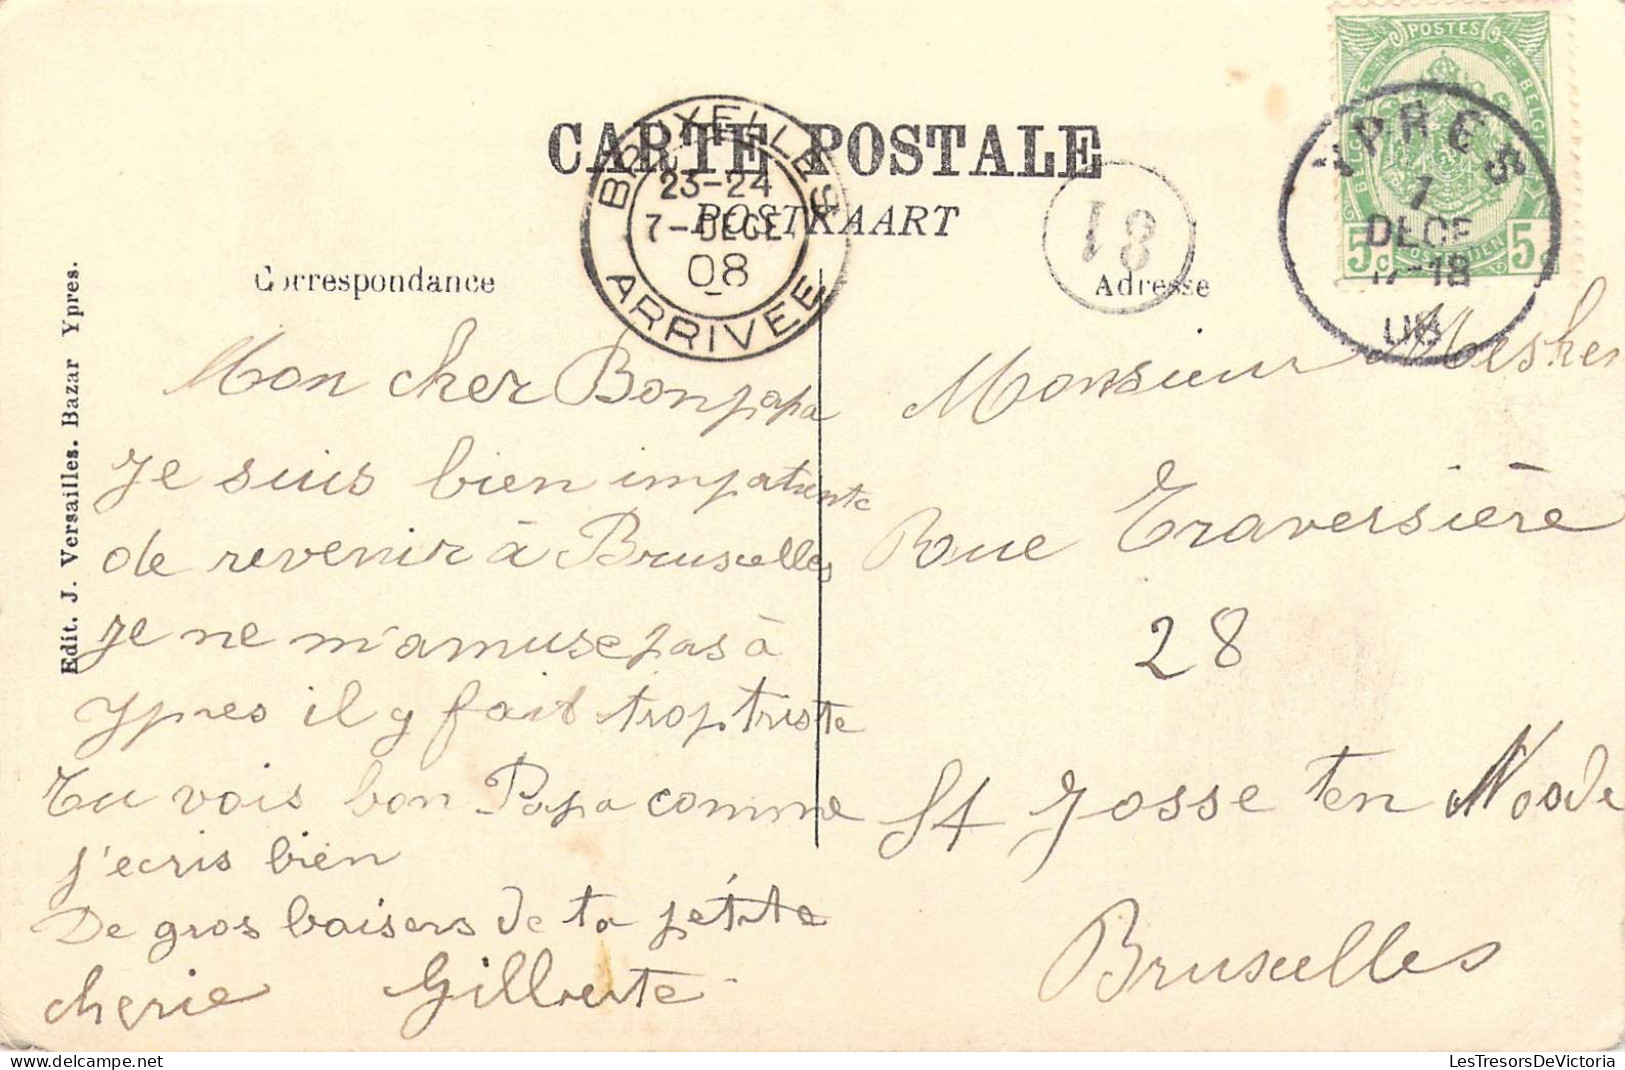 CARTE POSTALE
POSTKAART
Correspondance
Adresse
BRUXELLES
23-24
7-DECE
08
ARRIVEE
18
POSTES
BELGIQUE
5c
5c
YPRES
DECE
17-18
Edit. J. Versailles. Bazar Ypres.
Mon cher Bonpapa
Je suis bien impatiente
de revenir à Bruxelles
je ne m'amuse pas à
Ypres il y fait trop triste
Tu vois bon Papa comme
j'ecris bien
De gros baisers de ta pétite
cherie Gilberte
Monsieur
Rue Traversière
28
St Josse ten Noode
Bruxelles
LesTresorsDeVictoria